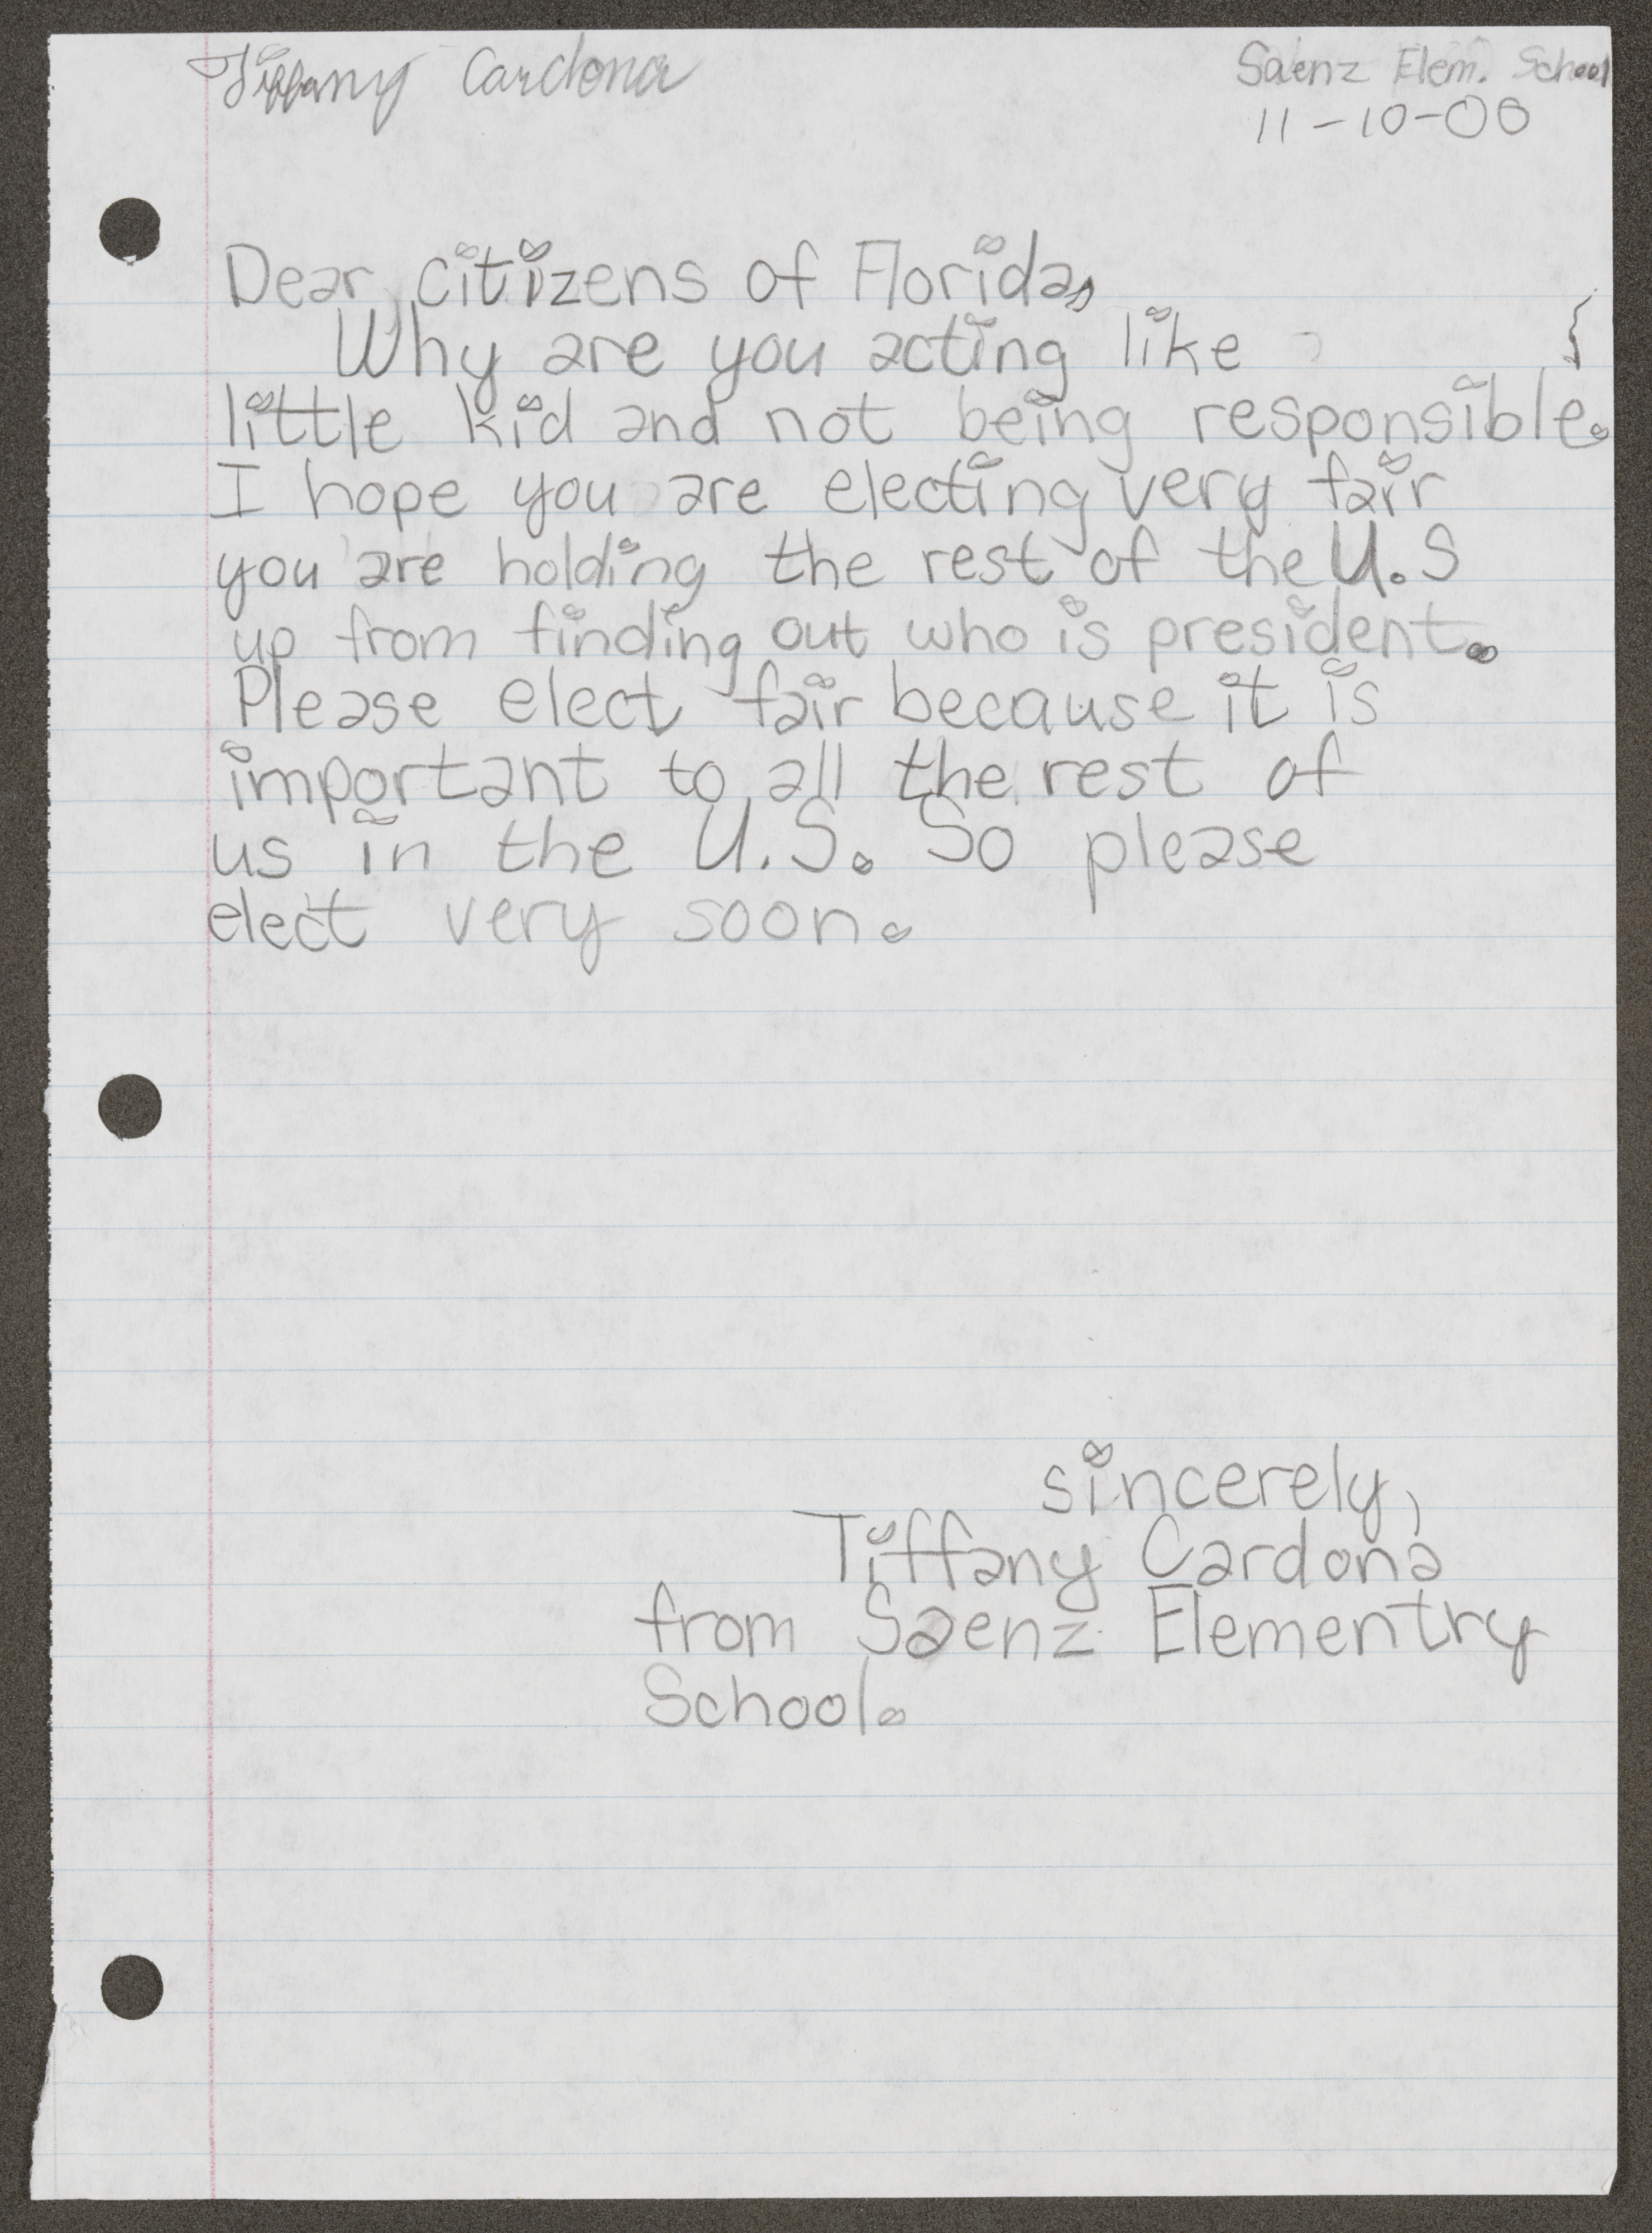 Tiffany Cardona
Saenz Elem. School
11-10-00
Dear, citizens of Florida,
Why are you acting like
little kid and not being responsible.
I hope you are electing very fair
you are holding the rest of the U.S
up from finding out who is president.
Please elect fair because it is
important to all the rest of
us in the U.S. So please
elect very soon.
sincerely,
Tiffany Cardona
from Saenz Elementry
School.